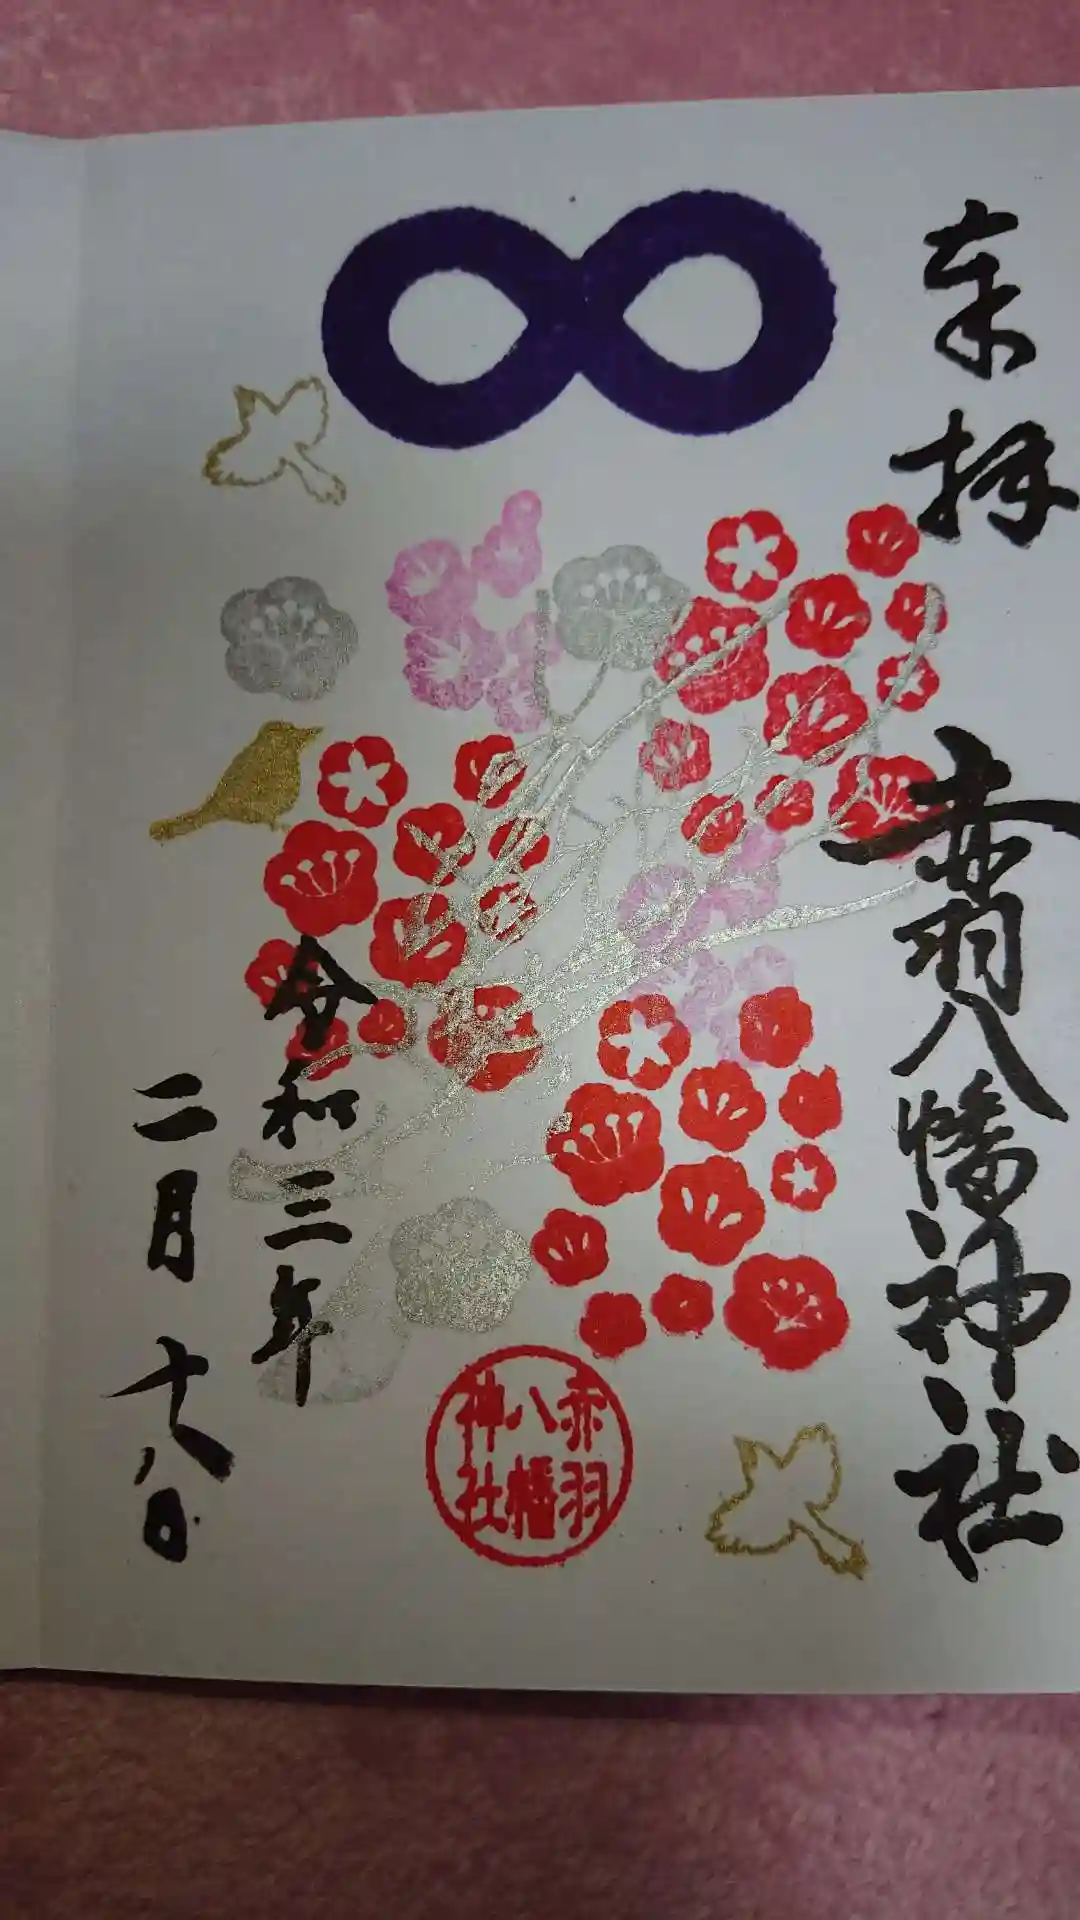 奉拝
赤羽八幡神社
赤羽
八幡
神社
令和三年
二月十八日